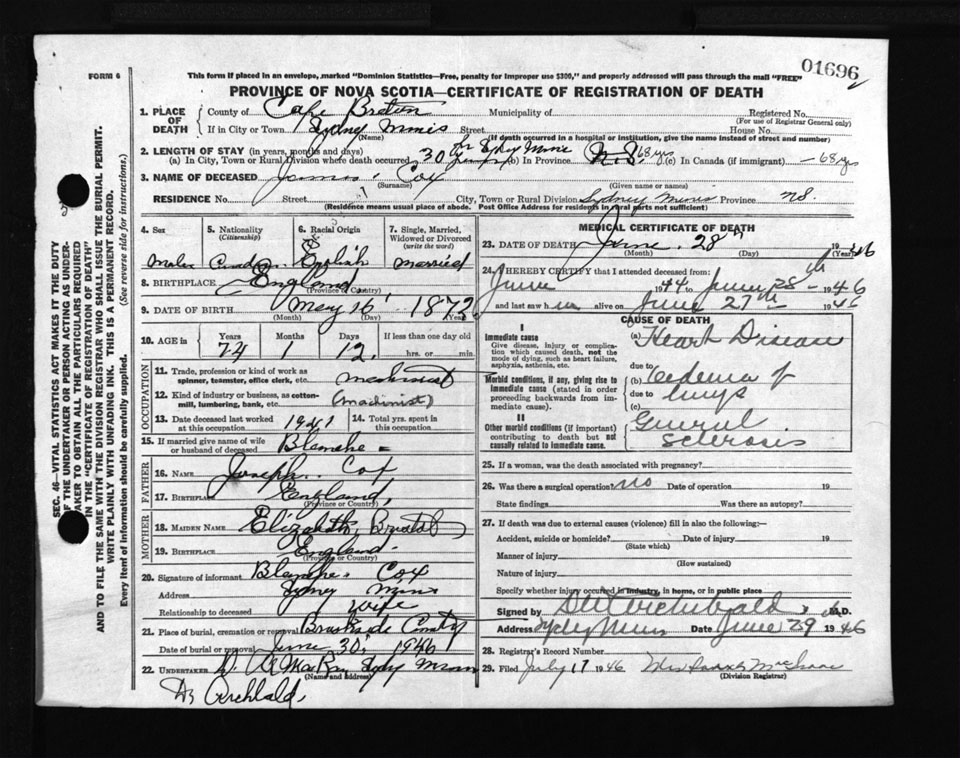 01696
FORM 6
This form if placed in an envelope, marked "Dominion Statistics—Free, penalty for improper use $300," and properly addressed will pass through the mail "FREE"
PROVINCE OF NOVA SCOTIA—CERTIFICATE OF REGISTRATION OF DEATH
SEC. 46—VITAL STATISTICS ACT MAKES IT THE DUTY
OF THE UNDERTAKER OR PERSON ACTING AS UNDER-
TAKER TO OBTAIN ALL THE PARTICULARS REQUIRED
IN THE "CERTIFICATE OF REGISTRATION OF DEATH"
AND TO FILE THE SAME WITH THE DIVISION REGISTRAR WHO SHALL ISSUE THE BURIAL PERMIT.
WRITE PLAINLY WITH UNFADING INK. THIS IS A PERMANENT RECORD.
Every item of information should be carefully supplied. (See reverse side for instructions.)
1. PLACE OF DEATH
County of Cape Breton Municipality of Registered No.
(For use of Registrar General only)
If in City or Town Sydney Mines Street House No.
(Name) (If death occurred in a hospital or institution, give the name instead of street and number)
2. LENGTH OF STAY (in years, months and days)
(a) In City, Town or Rural Division where death occurred 30 years (b) In Province N.S. 68 yrs (c) In Canada (if immigrant) —68 yrs
3. NAME OF DECEASED James Cox
(Surname) (Given name or names)
RESIDENCE No. Street City, Town or Rural Division Sydney Mines Province NS.
(Residence means usual place of abode. Post Office Address for residents in rural parts not sufficient)
4. Sex
Male
5. Nationality
(Citizenship)
6. Racial Origin
English
7. Single, Married,
Widowed or Divorced
(write the word)
Married
8. BIRTHPLACE England
(Province or Country)
9. DATE OF BIRTH May 16 1872
(Month) (Day) (Year)
10. AGE in Years Months Days If less than one day old
74 1 12. hrs. or min.
OCCUPATION
11. Trade, profession or kind of work as
spinner, teamster, office clerk, etc. Machinist
12. Kind of industry or business, as cotton-
mill, lumbering, bank, etc. (Machinist)
13. Date deceased last worked
at this occupation 1941
14. Total yrs. spent in
this occupation
15. If married give name of wife
or husband of deceased Blanche
FATHER
16. NAME Joseph Cox
17. BIRTHPLACE England,
(Province or Country)
MOTHER
18. MAIDEN NAME Elizabeth
19. BIRTHPLACE England.
(Province or Country)
20. Signature of informant Blanche Cox
Address Sydney Mines
Relationship to deceased Wife
21. Place of burial, cremation or removal
Date of burial or removal June 30, 1946
22. UNDERTAKER
(Name and address)
Dr Archbald,
MEDICAL CERTIFICATE OF DEATH
23. DATE OF DEATH June 28th 1946
(Month) (Day) (Year)
24. I HEREBY CERTIFY that I attended deceased from:
June 1944 to June 28th 1946
and last saw h im alive on June 27th 1946
CAUSE OF DEATH
I
Immediate cause
Give disease, injury or complica-
tion which caused death, not the
mode of dying, such as heart failure,
asphyxia, asthenia, etc.
(a) Heart Disease
due to
Morbid conditions, if any, giving rise to
immediate cause (stated in order
proceeding backwards from im-
mediate cause).
(b) Oedema of
due to lungs
(c)
II
Other morbid conditions (if important)
contributing to death but not
causally related to immediate cause.
General
Sclerosis
25. If a woman, was the death associated with pregnancy?
26. Was there a surgical operation? no Date of operation 19
State findings Was there an autopsy?
27. If death was due to external causes (violence) fill in also the following:—
Accident, suicide or homicide? Date of injury 19
(State which)
Manner of injury
(How sustained)
Nature of injury
Specify whether injury occurred in industry, in home, or in public place
Signed by Archibald M.D.
Address Sydney Mines Date June 29 1946
28. Registrar's Record Number
29. Filed July 17 1946
(Division Registrar)